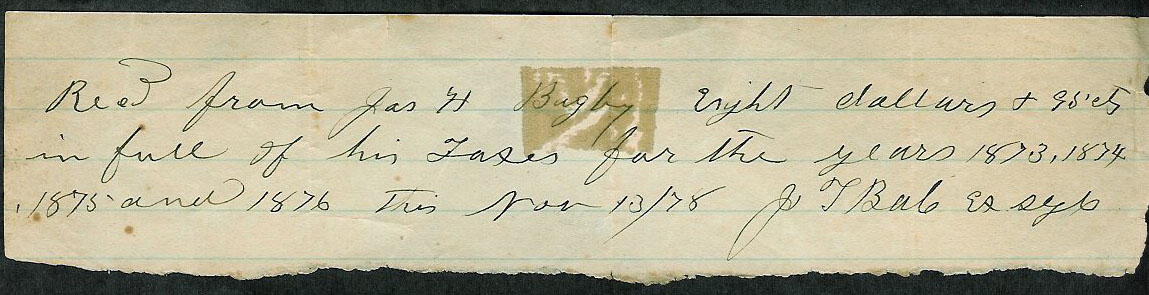 Recd from Jas H Bugby Eight dollars + 95 cts
in full of his Taxes for the years 1873, 1874
, 1875 and 1876 This Nov 13/78 J T Bab